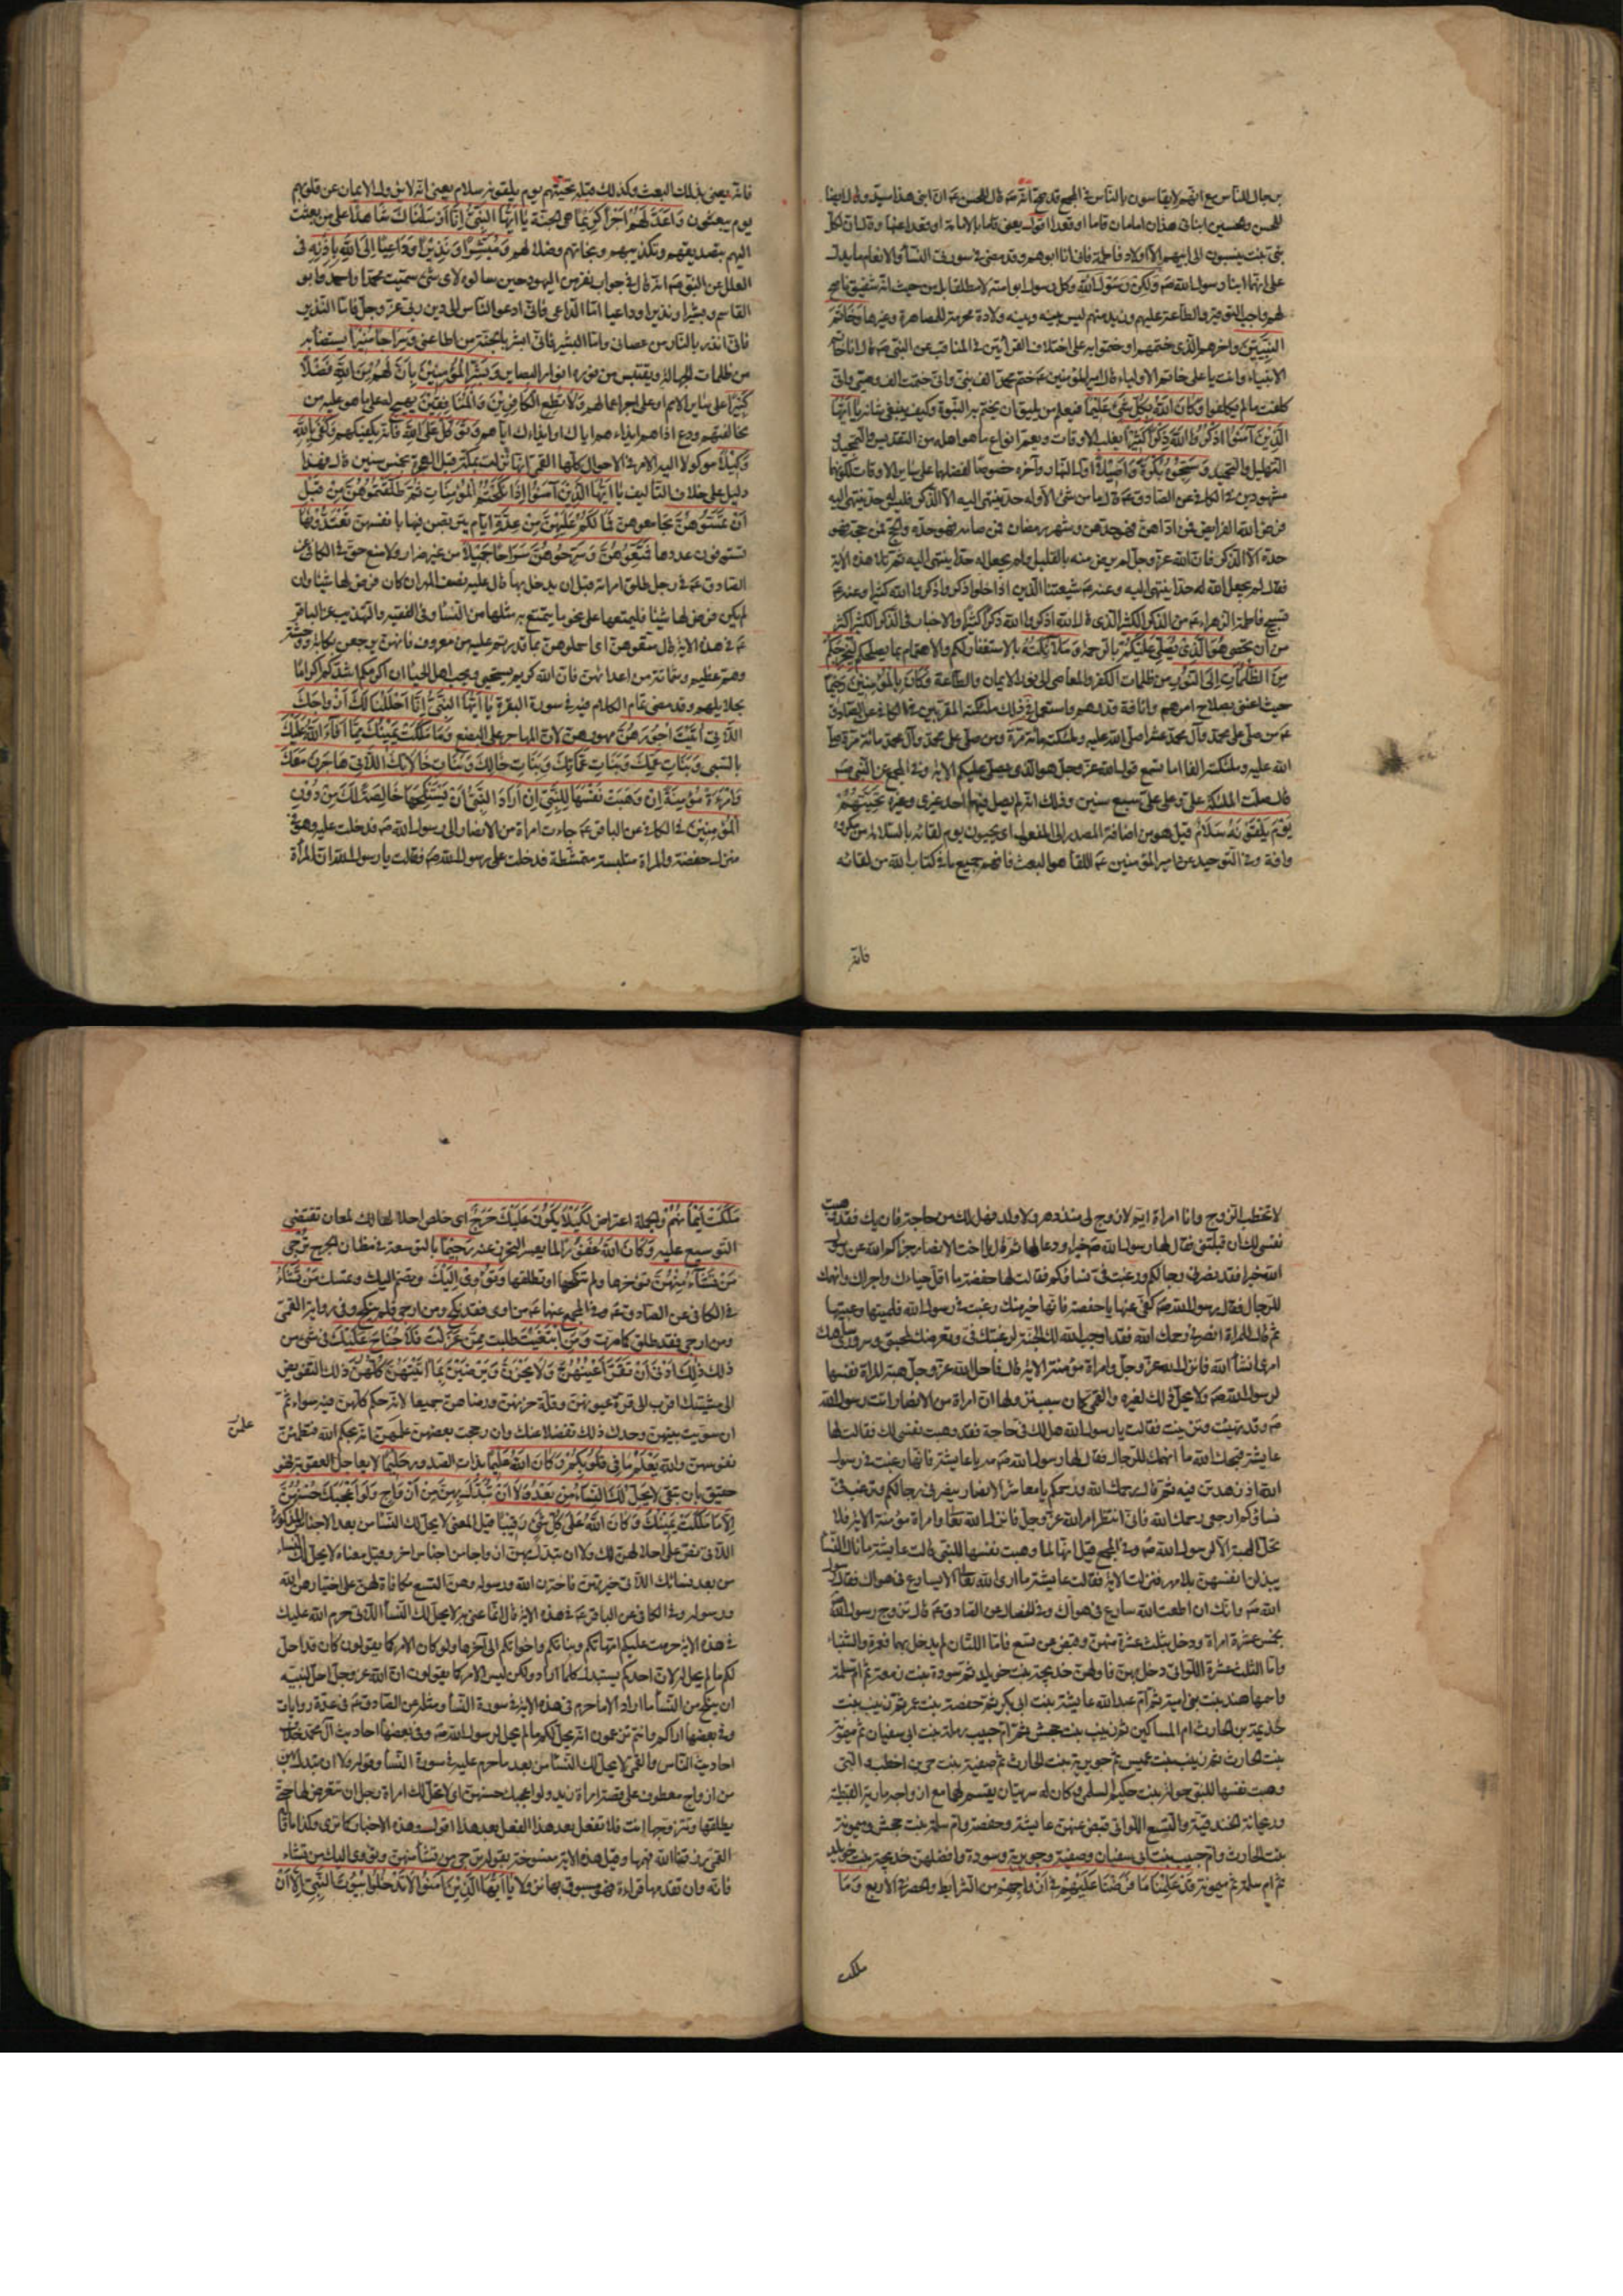 برجال الناس مع انهم لا يقاسون بالناس في المجمع قد صح انه ص قال للحسن ع ان ابني هذا سيد وقال ايضا
للحسن والحسين ابناي هذان امامان قاما او قعدا اقول يعني قاما بالامامة او قعدا عنها وقال ان كل
بني بنت ينسبون الى ابيهم الا اولاد فاطمة فاني انا ابوهم وقد مضى في سورة النسأ والانعام ما يدل
على انهما ابنا رسول الله ص ولكن رسول الله وكل رسول ابو امته لا مطلقا بل من حيث انه شفيق ناصح
لهم واجب التوقير والطاعة عليهم وزيد منهم ليس بينه وبينه ولادة محرمة للمصاهرة وغيرها وخاتم
النبيين واخرهم الذي ختمهم او ختموا به على اختلاف القرأتين في المناقب عن النبي ص قال انا خاتم
الانبياء وانت يا علي خاتم الاولياء وقال امير المؤمنين ع ختم محمد الف نبي واني ختمت الف وصي واني
كلفت ما لم يكلفوا وكان الله بكل شئ عليما فيعلم من يليق ان يختم به النبوة وكيف ينبغي شانه يا ايها
الذين آمنوا اذكروا الله ذكرا كثيرا يغلب الاوقات ويعم انواع ما هو اهله من التقديس والتمجيد و
التهليل والتحميد وسبحوه بكرة واصيلا اول النهار وآخره خصوصا لفضلهما على سائر الاوقات لكونهما
مشهودين في الكافي عن الصادق ع قال ما من شئ الا وله حد ينتهي اليه الا الذكر فليس له حد ينتهي اليه
فرض الله الفرايض فمن اداهن فهو حدهن وشهر رمضان فمن صامه فهو حده والحج فمن حج فهو
حده الا الذكر فان الله عز وجل لم يرض منه بالقليل ولم يجعل له حدا ينتهي اليه ثم تلا هذه الاية
فقال لم يجعل الله له حدا ينتهي اليه وعنه ع شيعتنا الذين اذا خلوا ذكروا الله كثيرا وعنه ع
تسبيح فاطمة الزهراء ع من الذكر الكثير الذي قال الله اذكروا الله ذكرا كثيرا والاخبار في الذكر الكثير اكثر
من ان تحصى هو الذي يصلي عليكم بالرحمة وملائكته بالاستغفار لكم والاهتمام بما يصلحكم ليخرجكم
من الظلمات الى النور من ظلمات الكفر والمعاصي الى نور الايمان والطاعة وكان بالمؤمنين رحيما
حيث اعتنى بصلاح امرهم وانافة قدرهم واستعمل في ذلك ملئكته المقربين في الكافي عن الصادق
ع من صلى على محمد وآل محمد عشرا صلى الله عليه وملئكته مائة مرة ومن صلى على محمد وآل محمد مائة مرة صلى
الله عليه وملئكته الفا اما تسمع قول الله عز وجل هو الذي يصلي عليكم الاية وفي المجمع عن النبي ص
قال صلت الملئكة علي وعلى علي سبع سنين وذلك انه لم يصل فيها احد غيري وغيره تحيتهم
يوم يلقونه سلام قيل هو من اضافة المصدر الى المفعول اي يحيون يوم لقائه بالسلامة من كل مكروه
وافة وفي التوحيد عن امير المؤمنين ع اللقأ هو البعث فافهم جميع ما في كتاب الله من لقائه
فانه
فانه يعني بذلك البعث وكذلك قوله تحيتهم يوم يلقونه سلام يعني انه لا يزول الايمان عن قلوبهم
يوم يبعثون واعد لهم اجرا كريما هي الجنة يا ايها النبي انا ارسلناك شاهدا على من بعثت
اليهم بتصديقهم وتكذيبهم ونجاتهم وضلالهم ومبشرا ونذيرا وداعيا الى الله باذنه في
العلل عن النبي ص انه قال في جواب نفر من اليهود حين سالوه لاي شئ سميت محمدا واحمد وابو
القاسم وبشيرا ونذيرا وداعيا اما الداعي فاني ادعو الناس الى دين ربي عز وجل واما النذير
فاني انذر بالنار من عصاني واما البشير فاني ابشر بالجنة من اطاعني وسراجا منيرا يستضاء به
من ظلمات الجهالة ويقتبس من نوره انوار البصاير وبشر المؤمنين بان لهم من الله فضلا
كبيرا على سائر الامم او على اجر اعمالهم ولا تطع الكافرين والمنافقين تهييج له على ما هو عليه من
مخالفتهم ودع اذاهم ايذاءهم اياك او ايذاءك اياهم وتوكل على الله فانه يكفيكهم وكفى بالله
وكيلا موكولا اليه الامر في الاحوال كلها القمي انها نزلت بمكة قبل الهجرة بخمس سنين قال فهذا
دليل على خلاف التأليف يا ايها الذين آمنوا اذا نكحتم المؤمنات ثم طلقتموهن من قبل
ان تمسوهن تجامعوهن فما لكم عليهن من عدة ايام يتربصن فيها بانفسهن تعتدونها
تستوفون عددها فمتعوهن وسرحوهن سراحا جميلا من غير ضرار ولا منع حق في الكافي عن
الصادق ع في رجل طلق امراته قبل ان يدخل بها قال عليه نصف المهر ان كان فرض لها شيئا وان
لم يكن فرض لها شيئا فليمتعها على نحو ما يتمتع به مثلها من النسأ وفي الفقيه والتهذيب عن الباقر
ع في هذه الاية قال متعوهن اي احملوهن بما قدرتم عليه من معروف فانهن يرجعن بكابة ووحشة
وهم عظيم وشماتة من اعدائهن فان الله كريم يستحيي ويحب اهل الحيأ ان اكرمكم اشدكم اكراما
بحلايلهم وقد مضى تمام الكلام فيه في سورة البقرة يا ايها النبي انا احللنا لك ازواجك
اللاتي اتيت اجورهن مهورهن لان المهر اجر على البضع وما ملكت يمينك مما افاء الله عليك
بالسبي وبنات عمك وبنات عماتك وبنات خالك وبنات خالاتك اللاتي هاجرن معك
وامرءة مؤمنة ان وهبت نفسها للنبي ان اراد النبي ان يستنكحها خالصة لك من دون
المؤمنين في الكافي عن الباقر ع جاءت امراة من الانصار الى رسول الله ص فدخلت عليه وهو في
منزل حفصة والمراة متلبسة متمشطة فدخلت على رسول الله ص فقالت يا رسول الله ان المرأة
لا تخطب الزوج وانا امراة ايم لا زوج لي منذ دهر ولا ولد فهل لك من حاجة فان يك فقد وهبت
نفسي لك ان قبلتني فقال لها رسول الله ص خيرا ودعا لها ثم قال يا اخت الانصار جزاكم الله عن رسول
الله خيرا فقد نصرني رجالكم ورغبت في نساؤكم فقالت لها حفصة ما اقل حياءك واجراك وانهمك
للرجال فقال رسول الله ص كفي عنها يا حفصة فانها خير منك رغبت في رسول الله فلمتيها وعيبتيها
ثم قال للمراة انصرفي رحمك الله فقد اوجب الله لك الجنة لرغبتك في وتعرضك لمحبتي وسروري وسياتيك
امري انشأ الله فانزل الله عز وجل وامراة مؤمنة الاية قال فاحل الله عز وجل هبة المراة نفسها
لرسول الله ص ولا يحل ذلك لغيره والقمي كان سبب نزولها ان امراة من الانصار اتت رسول الله
ص وقد تهيئت وتزينت فقالت يا رسول الله هل لك في حاجة فقد وهبت نفسي لك فقالت لها
عايشة قبحك الله ما انهمك للرجال فقال لها رسول الله ص مه يا عايشة فانها رغبت في رسول
الله اذ زهدتن فيه ثم قال رحمك الله ورحمكم يا معاشر الانصار نصرني رجالكم ورغبت في
نساؤكم ارجعي رحمك الله فاني انتظر امر الله عز وجل فانزل الله تعا وامراة مؤمنة الاية فلا
تحل الهبة الا لرسول الله ص وفي المجمع قيل انها لما وهبت نفسها للنبي قالت عايشة ما بال النسأ
يبذلن انفسهن بلا مهر فنزلت الاية فقالت عايشة ما ارى الله تعا الا يسارع في هواك فقال رسول
الله ص وانك ان اطعت الله سارع في هواك وفي الخصال عن الصادق ع قال تزوج رسول الله
بخمس عشرة امراة ودخل بثلث عشرة منهن وقبض عن تسع فاما اللتان لم يدخل بهما فعمرة والشنباء
واما الثلث عشرة اللواتي دخل بهن فاولهن خديجة بنت خويلد ثم سودة بنت زمعة ثم ام سلمة
واسمها هند بنت ابي امية ثم ام عبد الله عايشة بنت ابي بكر ثم حفصة بنت عمر ثم زينب بنت
خزيمة بن الحارث ام المساكين ثم زينب بنت جحش ثم ام حبيب رملة بنت ابي سفيان ثم ميمونة
بنت الحارث ثم زينب بنت عميس ثم جويرية بنت الحارث ثم صفية بنت حي بن اخطب و التي
وهبت نفسها للنبي خولة بنت حكيم السلمي وكان له سريتان يقسم لهما مع ازواجه مارية القبطية
وريحانة الخندفية والتسع اللواتي قبض عنهن عايشة وحفصة وام سلمة وزينب بنت جحش وميمونة
بنت الحارث وام حبيب بنت ابي سفيان وصفية وجويرية وسودة وافضلهن خديجة بنت خويلد
ثم ام سلمة ثم ميمونة قد علمنا ما فرضنا عليهم في ازواجهم من الشرايط والحصر في الاربع وما
ملكت
ملكت ايمانهم والجملة اعتراض لكيلا يكون عليك حرج اي خلص احلالها لك لمعان تقتضي
التوسيع عليه وكان الله غفورا لما يعسر التحرز عنه رحيما بالتوسعة في مظان الحرج ترجي
من تشآء منهن تؤخرها ولم تنكحها او تطلقها وتؤوي اليك وتضم اليك وتمسك من تشاء
في الكافي عن الصادق ع وفي المجمع عنهما ع من اوى فقد نكح ومن ارجى فلم ينكح وفي رواية القمي
ومن ارجى فقد طلق كما مرت ومن ابتغيت طلبت ممن عزلت فلا جناح عليك في شئ من
ذلك ذلك ادنى ان تقر اعينهن ولا يحزن ويرضين بما اتيتهن كلهن ذلك التفويض
الى مشيتك اقرب الى قرة عيونهن وقلة حزنهن ورضاهن جميعا لانه حكم كلهن فيه سواء ثم
ان سويت بينهن وجدن ذلك تفضلا منك وان رجحت بعضهن علمن انه بحكم الله فتطمئن
علمن
نفوسهن والله يعلم ما في قلوبكم وكان الله عليما بذات الصدور حليما لا يعاجل العقوبة فهو
حقيق بان يتقى لا يحل لك النساء من بعد ولا ان تبدل بهن من ازواج ولو اعجبك حسنهن
الا ما ملكت يمينك وكان الله على كل شئ رقيبا قيل المعني لا يحل لك النسأ من بعد الاجناس المذكورة
اللاتي نص على احلالهن لك ولا ان تبدل بهن ازواجا من اجناس اخر وقيل معناه لا يحل لك النساء
من بعد نسائك اللاتي خيرتهن فاخترن الله ورسوله وهن التسع مكافاة لهن على اختيارهن الله
ورسوله وفي الكافي عن الباقر ع في هذه الاية قال انما عنى به لا يحل لك النسأ اللاتي حرم الله عليك
في هذه الاية حرمت عليكم امهاتكم وبناتكم واخواتكم الى آخرها ولو كان الامر كما يقولون كان قد احل
لكم ما لم يحل له لان احدكم يستبدل كلما اراد ولكن ليس الامر كما يقولون ان الله عز وجل احل لنبيه
ان ينكح من النسأ ما اراد الا ما حرم في هذه الاية في سورة النسأ ومثله عن الصادق ع في عدة روايات
وفي بعضها اراكم وانتم تزعمون انه يحل لكم ما لم يحل لرسول الله ص وفي بعضها احاديث آل محمد خلاف
احاديث الناس والقمي لا يحل لك النسأ من بعد ما حرم عليه في سورة النسأ وقوله ولا ان تبدل بهن
من ازواج معطوف على قصة امراة زيد ولو اعجبك حسنهن اي لا يحل لك امراة رجل ان تتعرض لها حتى
يطلقها وتتزوجها انت فلا تفعل بعد هذا الفعل بعد هذا اقول وهذه الاخبار كما ترى وكذا ما قاله
القمي رزقنا الله فهمها وقيل هذه الاية منسوخة بقوله ترجي من تشأ منهن وتؤوي اليك من تشاء
فانه وان تقدمها قراءة فهو مسبوق بها نزولا يا ايها الذين آمنوا لا تدخلوا بيوت النبي الا ان